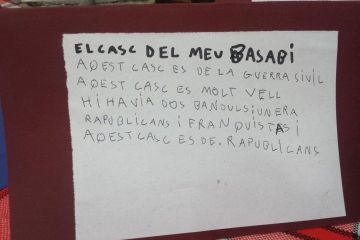 EL CASC DEL MEU BASABI
AQEST CASC ES DE LA GUERRA SIVIL
AQEST CASC ES MOLT VELL
HI HAVIA DOS BANDULS I UN ERA
RAPUBLICANS I FRANQUISTAS I
AQEST CASC ES DE. RAPUBLICANS